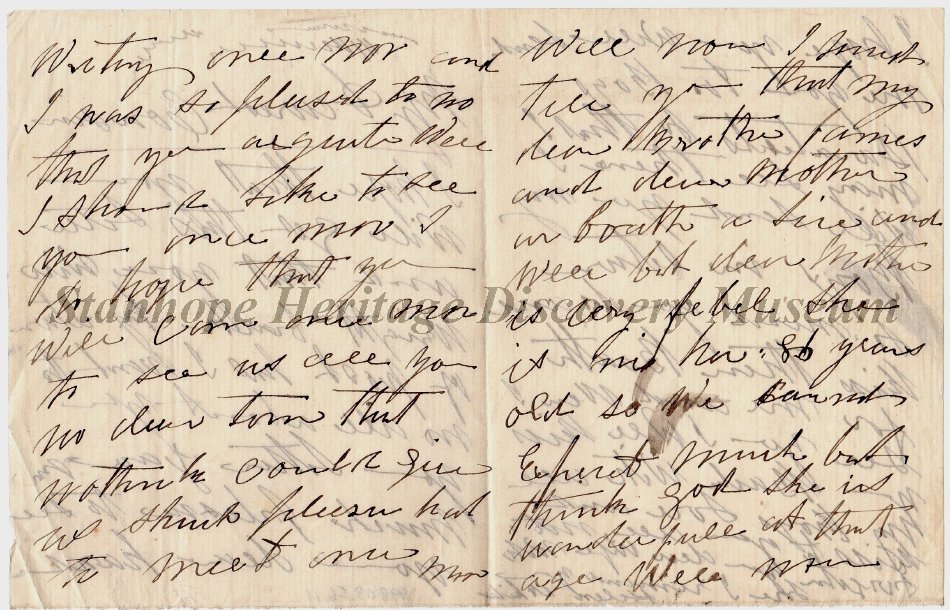 Writing once mor and
I was so pleased to no
that you ar quite Well
I should like to see
you once mor I
hope that you
Will com once mor
to see us all you
no dear tom that
nothink could give
us shuch pleasur but
to meet once mor
Well now I must
tell you that my
dear Brother James
and dear Mother
ar bouth a live and
Well but dear Mother
is very febel she
is in her 86 years
old so We cannot
Expect much but
thank god she is
wonderfull at that
age Well now
Stanhope Heritage Discovery Museum